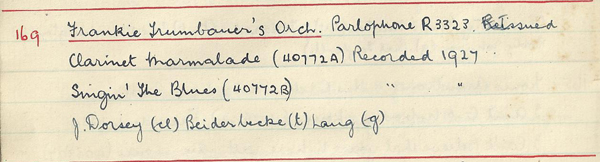 169 Frankie Trumbauer's Orch. Parlophone R3323. Reissued
Clarinet Marmalade (40772A) Recorded 1927
Singin' The Blues (40772B) " "
J. Dorsey (cl) Beiderbecke (t) Lang (g)